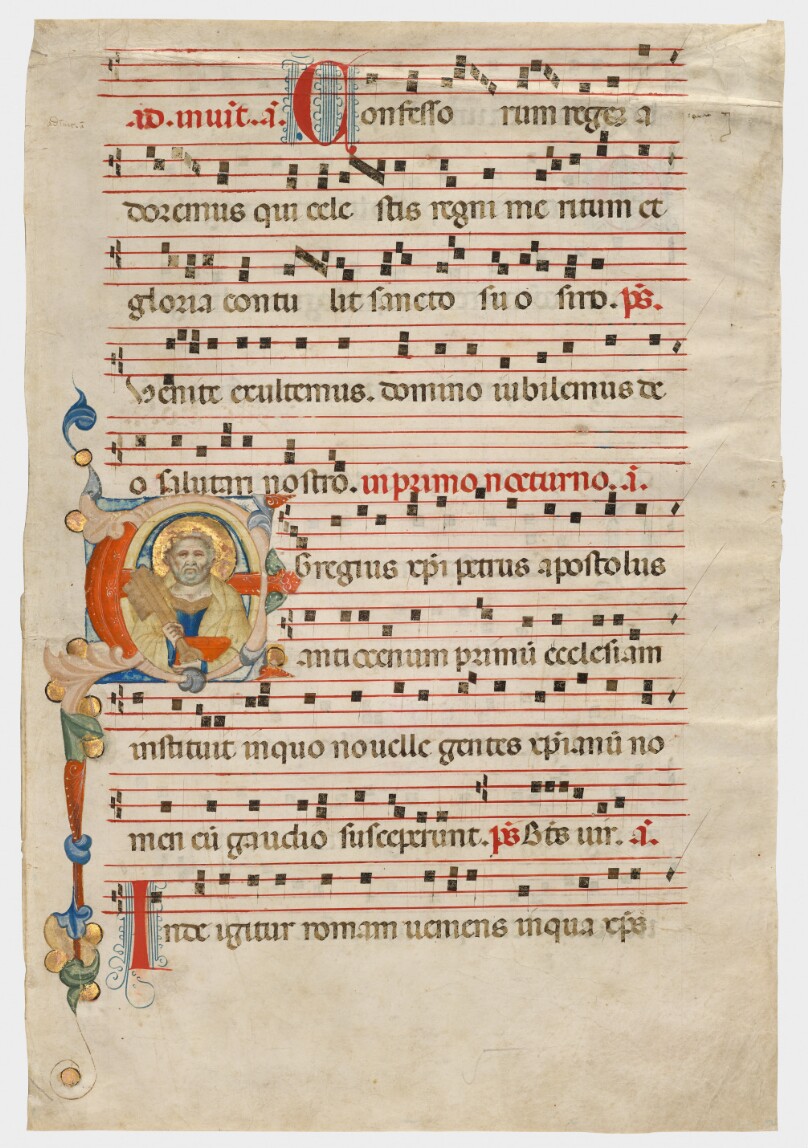 ad. inuit. a. Confessorum regez a
doremus qui celestis regni meritum et
gloria contulit sancto suo siro. ps.
Venite exultemus. domino iubilemus de
o salutari nostro. in primo nocturno. a.
Egregius xpi petrus apostolus
antiocenum primū ecclesiam
instituit inquo nouelle gentes xpianū no
men cū gaudio susceperunt. ps Bts uir. a.
Inde igitur romam ueniens inqua xps